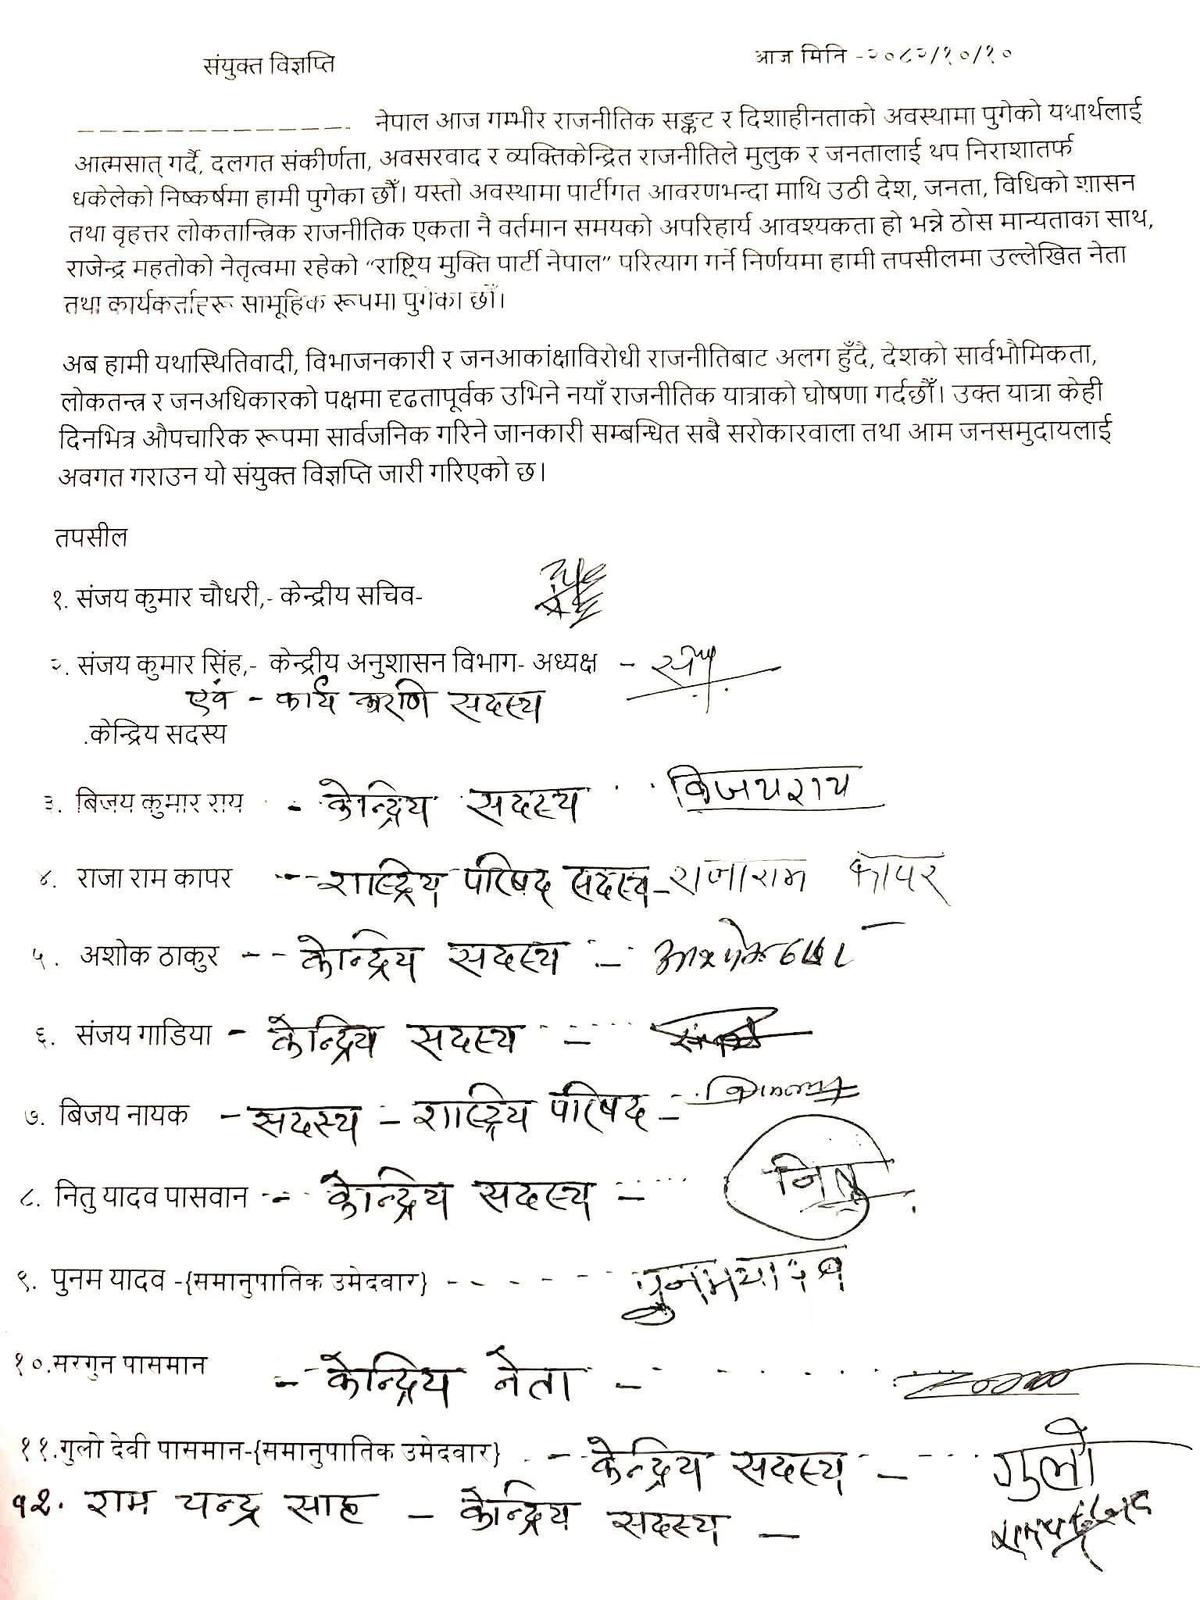 संयुक्त विज्ञप्ति
आज मिति -२०८२/१०/१०
नेपाल आज गम्भीर राजनीतिक सङ्कट र दिशाहीनताको अवस्थामा पुगेको यथार्थलाई
आत्मसात् गर्दै, दलगत संकीर्णता, अवसरवाद र व्यक्तिकेन्द्रित राजनीतिले मुलुक र जनतालाई थप निराशातर्फ
धकेलेको निष्कर्षमा हामी पुगेका छौँ। यस्तो अवस्थामा पार्टीगत आवरणभन्दा माथि उठी देश, जनता, विधिको शासन
तथा वृहत्तर लोकतान्त्रिक राजनीतिक एकता नै वर्तमान समयको अपरिहार्य आवश्यकता हो भन्ने ठोस मान्यताका साथ,
राजेन्द्र महतोको नेतृत्वमा रहेको “राष्ट्रिय मुक्ति पार्टी नेपाल” परित्याग गर्ने निर्णयमा हामी तपसीलमा उल्लेखित नेता
तथा कार्यकर्ताहरू सामूहिक रूपमा पुगेका छौँ।
अब हामी यथास्थितिवादी, विभाजनकारी र जनआकांक्षाविरोधी राजनीतिबाट अलग हुँदै, देशको सार्वभौमिकता,
लोकतन्त्र र जनअधिकारको पक्षमा दृढतापूर्वक उभिने नयाँ राजनीतिक यात्राको घोषणा गर्दछौँ। उक्त यात्रा केही
दिनभित्र औपचारिक रूपमा सार्वजनिक गरिने जानकारी सम्बन्धित सबै सरोकारवाला तथा आम जनसमुदायलाई
अवगत गराउन यो संयुक्त विज्ञप्ति जारी गरिएको छ।
तपसील
१. संजय कुमार चौधरी,- केन्द्रीय सचिव-
२. संजय कुमार सिंह,- केन्द्रीय अनुशासन विभाग- अध्यक्ष -
एवं - कार्य करणि सदस्य
.केन्द्रिय सदस्य
३. बिजय कुमार राय - केन्द्रिय सदस्य विजय राय
४. राजा राम कापर -- राष्ट्रिय परिषद सदस्य - राजाराम कापर
५. अशोक ठाकुर -- केन्द्रिय सदस्य -
६. संजय गाडिया - केन्द्रिय सदस्य -
७. बिजय नायक - सदस्य - राष्ट्रिय परिषद -
८. नितु यादव पासवान -- केन्द्रिय सदस्य - नितु
९. पुनम यादव -{समानुपातिक उमेदवार} - - - - - पुनम यादव
१०.सरगुन पासमान - केन्द्रिय नेता -
११.गुलो देवी पासमान-{समानुपातिक उमेदवार} - केन्द्रिय सदस्य - गुलो
१२. राम चन्द्र साह - केन्द्रिय सदस्य -